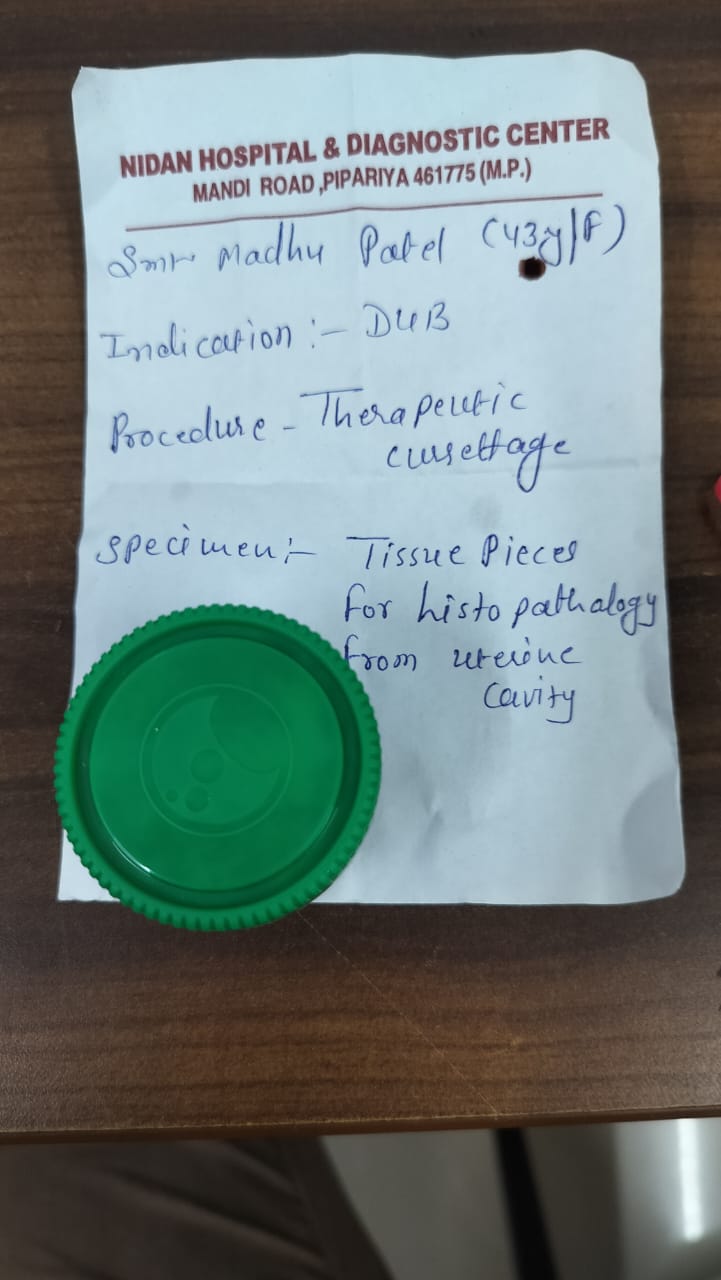 NIDAN HOSPITAL & DIAGNOSTIC CENTER
MANDI ROAD ,PIPARIYA 461775 (M.P.)
Smt Madhu Patel (43y/F)
Indication :- DUB
Procedure - Therapeutic
curettage
Specimen :- Tissue Pieces
For histo pathalogy
From uterine
Cavity